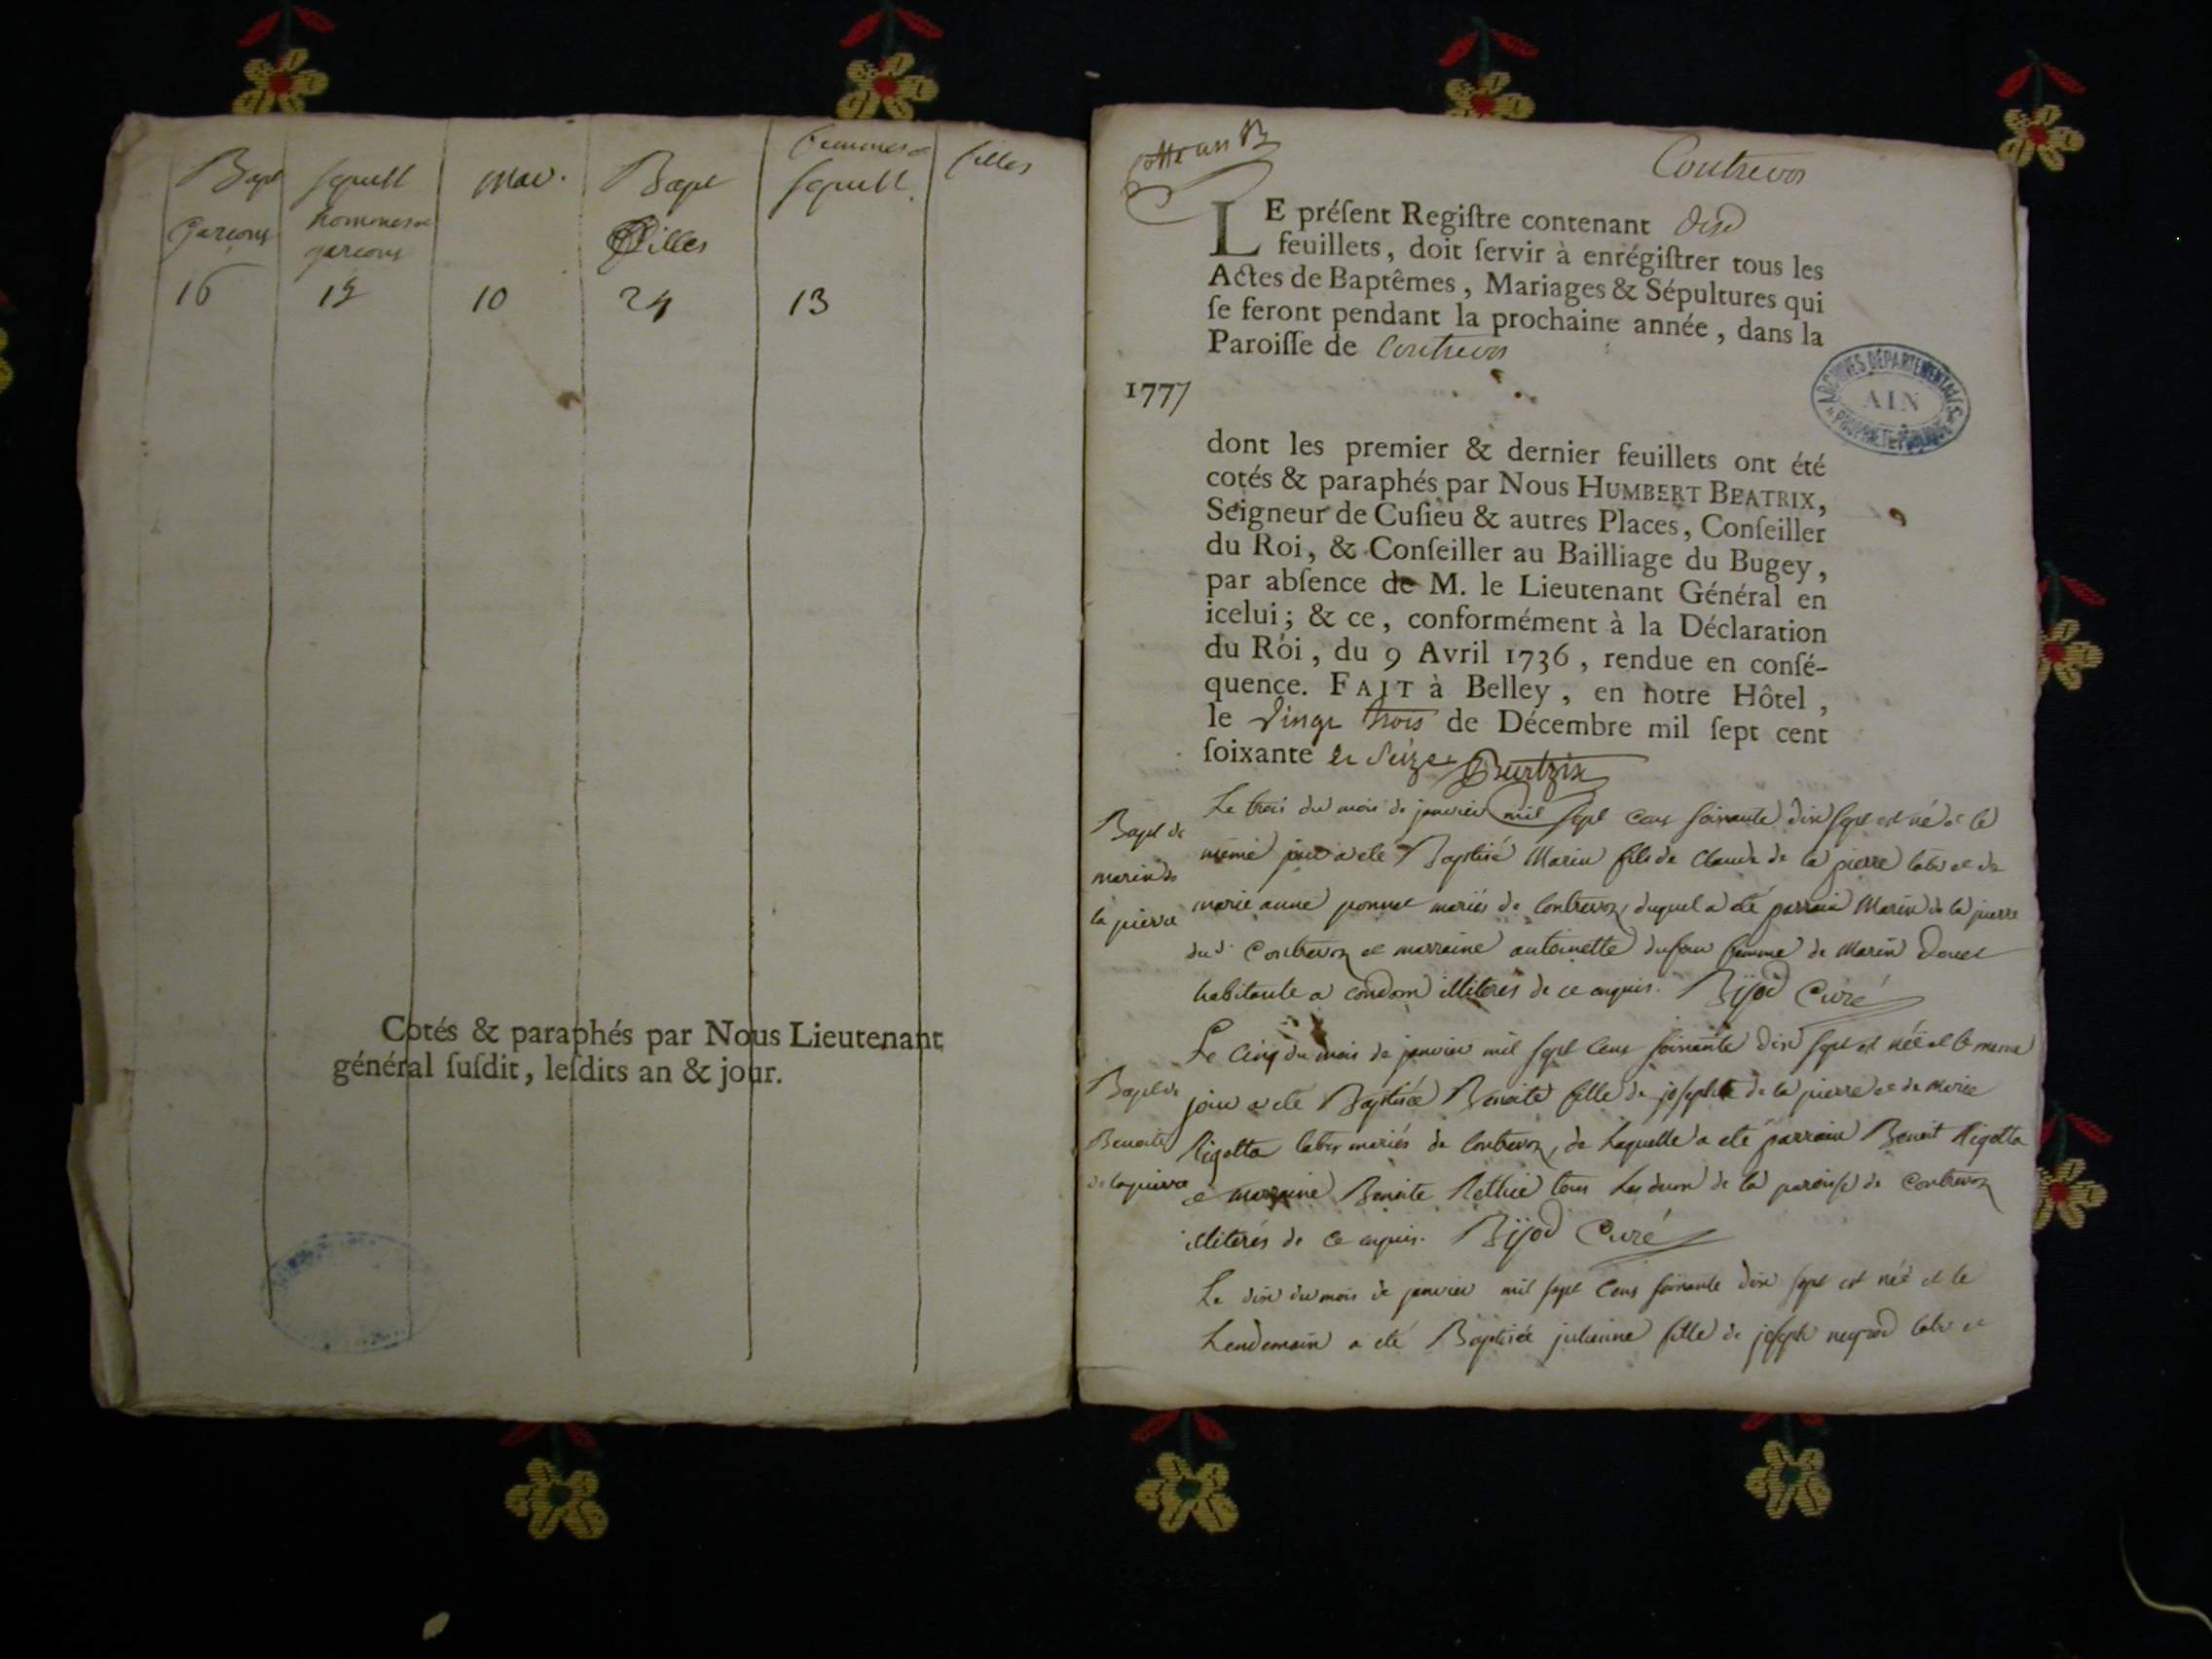 Bapt
garçons
16
sepult
hommes et
garçons
mar.
10
Bapt
filles
24
femmes et
sepult.
13
filles
Cotés & paraphés par Nous Lieutenant
général ſuſdit, leſdits an & jour.
Contrevoz
LE préſent Regiſtre contenant dix
feuillets, doit ſervir à enrégiſtrer tous les
Actes de Baptêmes, Mariages & Sépultures qui
ſe feront pendant la prochaine année, dans la
Paroiſſe de Contrevoz
1777
ARCHIVES DÉPARTEMENTALES
AIN
PROPRIÉTÉ PUBLIQUE
dont les premier & dernier feuillets ont été
cotés & paraphés par Nous HUMBERT BEATRIX,
Seigneur de Cuſieu & autres Places, Conſeiller
du Roi, & Conſeiller au Bailliage du Bugey,
par abſence de M. le Lieutenant Général en
icelui; & ce, conformément à la Déclaration
du Roi, du 9 Avril 1736, rendue en conſé-
quence. FAIT à Belley, en notre Hôtel,
le vingt trois de Décembre mil ſept cent
ſoixante et seize
Bapt de
marin de
la pierre
Le trois du mois de janvier mil sept cens soixante dix sept est né et le
même jour a eté Baptisé Marin fils de Claude de la pierre labr et de
marie anne ponnet mariés de Contrevoz, duquel a eté parrain Marin de la pierre
dud. Contrevoz et marraine antoinette dufour femme de Marin
habitante a condom illiterés de ce enquis. Bijod Curé
Bapt de
Benoite
de la pierre
Le cinq du mois de janvier mil sept cens soixante dix sept est néé et le meme
jour a eté Baptisée Benoite fille de joseph de la pierre et de Marie
Rigotta labrs mariés de Contrevoz, de Laquelle a eté parrain Benoit Rigotta
et marraine Benoite tous Les deux de la paroisse de Contrevoz
illiterés de ce enquis. Bijod Curé
Le dix du mois de janvier mil sept cens soixante dix sept est néé et le
Lendemain a eté Baptisée julienne fille de joseph labr et